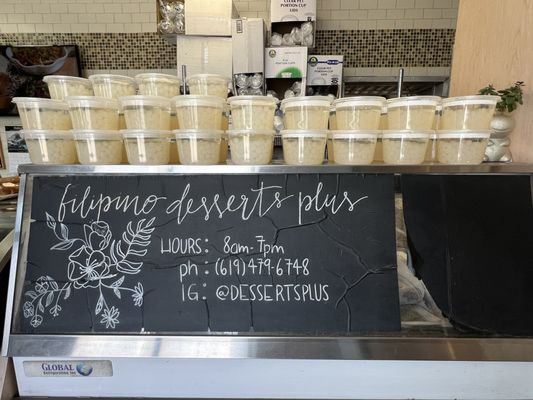 PORTION CUP
LIDS
PORTION CUP
filipino desserts plus
HOURS: 8am-7pm
ph: (619)479-6748
IG: @DESSERTSPLUS
GLOBAL